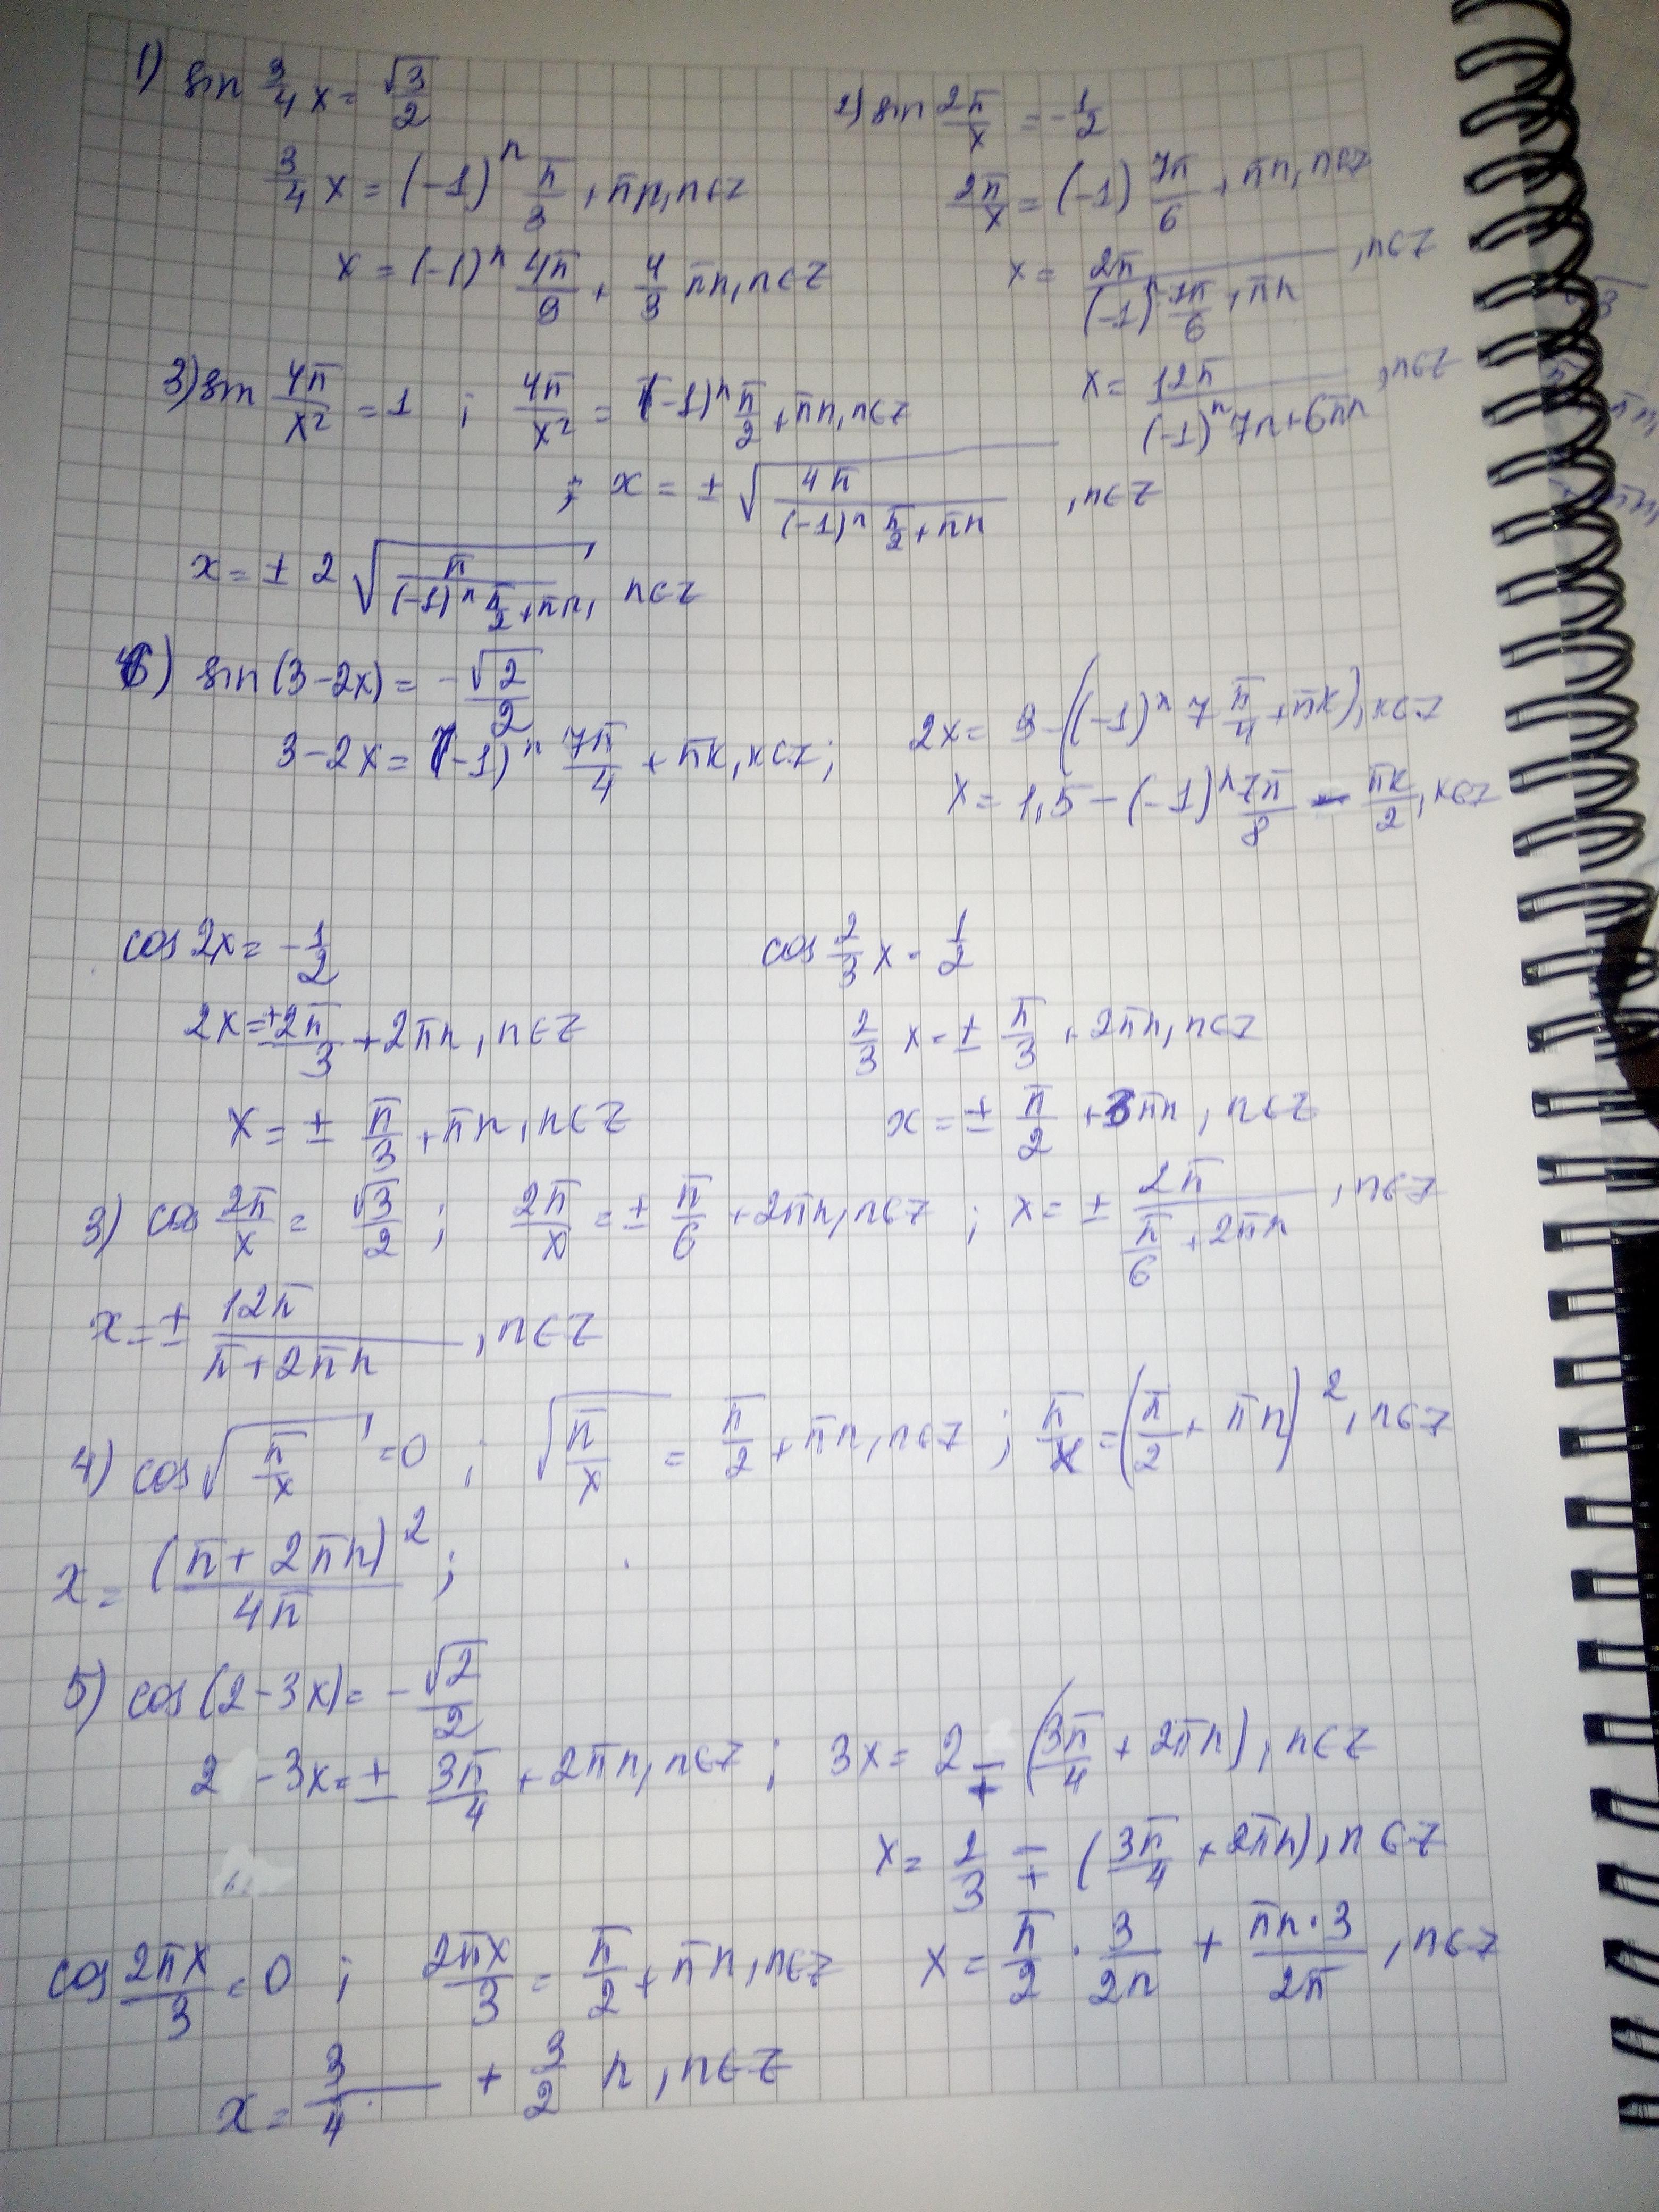 1) sin 3/4 x = √3/2
3/4 x = (-1)^n π/3 + πn, n∈Z
x = (-1)^n 4π/9 + 4/3 πn, n∈Z
2) sin 2π/x = -1/2
2π/x = (-1) 7π/6 + πn, n∈Z
x = 2π/((-1)^n 7π/6 + πn), n∈Z
x = 12π/((-1)^n 7π + 6πn), n∈Z
3) sin 4π/x² = 1 ; 4π/x² = (-1)^n π/2 + πn, n∈Z
; x = ± √(4π/((-1)^n π/2 + πn)), n∈Z
x = ± 2 √(π/((-1)^n π/2 + πn)), n∈Z
6) sin(3-2x) = -√2/2
3-2x = (-1)^n 7π/4 + πk, k∈Z; 2x = 3-((-1)^k 7 π/4 + πk), k∈Z
x = 1,5 - (-1)^k 7π/8 - πk/2, k∈Z
cos 2x = -1/2
2x = ±2π/3 + 2πn, n∈Z
x = ± π/3 + πn, n∈Z
cos 2/3 x = 1/2
2/3 x = ± π/3 + 2πn, n∈Z
x = ± π/2 + 3πn, n∈Z
3) cos 2π/x = √3/2 ; 2π/x = ± π/6 + 2πn, n∈Z ; x = ± 2π/(π/6 + 2πn), n∈Z
x = ± 12π/(π+2πn), n∈Z
4) cos √(π/x) = 0 ; √(π/x) = π/2 + πn, n∈Z ; π/x = (π/2 + πn)², n∈Z
x = (π + 2πn)²/4π ;
5) cos(2-3x) = -√2/2
2 -3x = ± 3π/4 + 2πn, n∈Z ; 3x = 2 ∓ (3π/4 + 2πn), n∈Z
x = 2/3 ∓ (3π/4 + 2πn), n∈Z
cos 2πx/3 = 0 ; 2πx/3 = π/2 + πn, n∈Z x = π/2 · 3/2π + πn·3/2π, n∈Z
x = 3/4 + 3/2 n, n∈Z